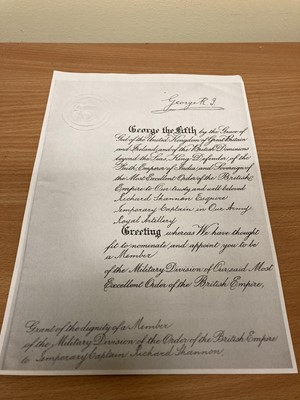 George R. I.
George the Fifth by the Grace of
God of the United Kingdom of Great Britain
and Ireland and of the British Dominions
beyond the Seas King Defender of the
Faith, Emperor of India and Sovereign of
the Most Excellent Order of the British
Empire to Our trusty and well beloved
Richard Shannon Esquire
Temporary Captain in Our Army
Royal Artillery
Greeting whereas We have thought
fit to nominate and appoint you to be
a Member
of the Military Division of Our said Most
Excellent Order of the British Empire,
Grant of the dignity of a Member
of the Military Division of the Order of the British Empire
to Temporary Captain Richard Shannon.